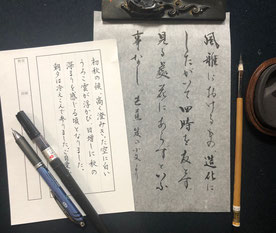 風雅におけるもの造化に
したがひて四時を友とす
見る處花にあらずといふ
事なし 芭蕉 笈の小文より
初秋の候、高く澄みきった空に白い
うろこ雲が浮かび、日増しに秋の
深まりを感じる頃となりました。
朝夕は冷えこんで参りました。ご自愛